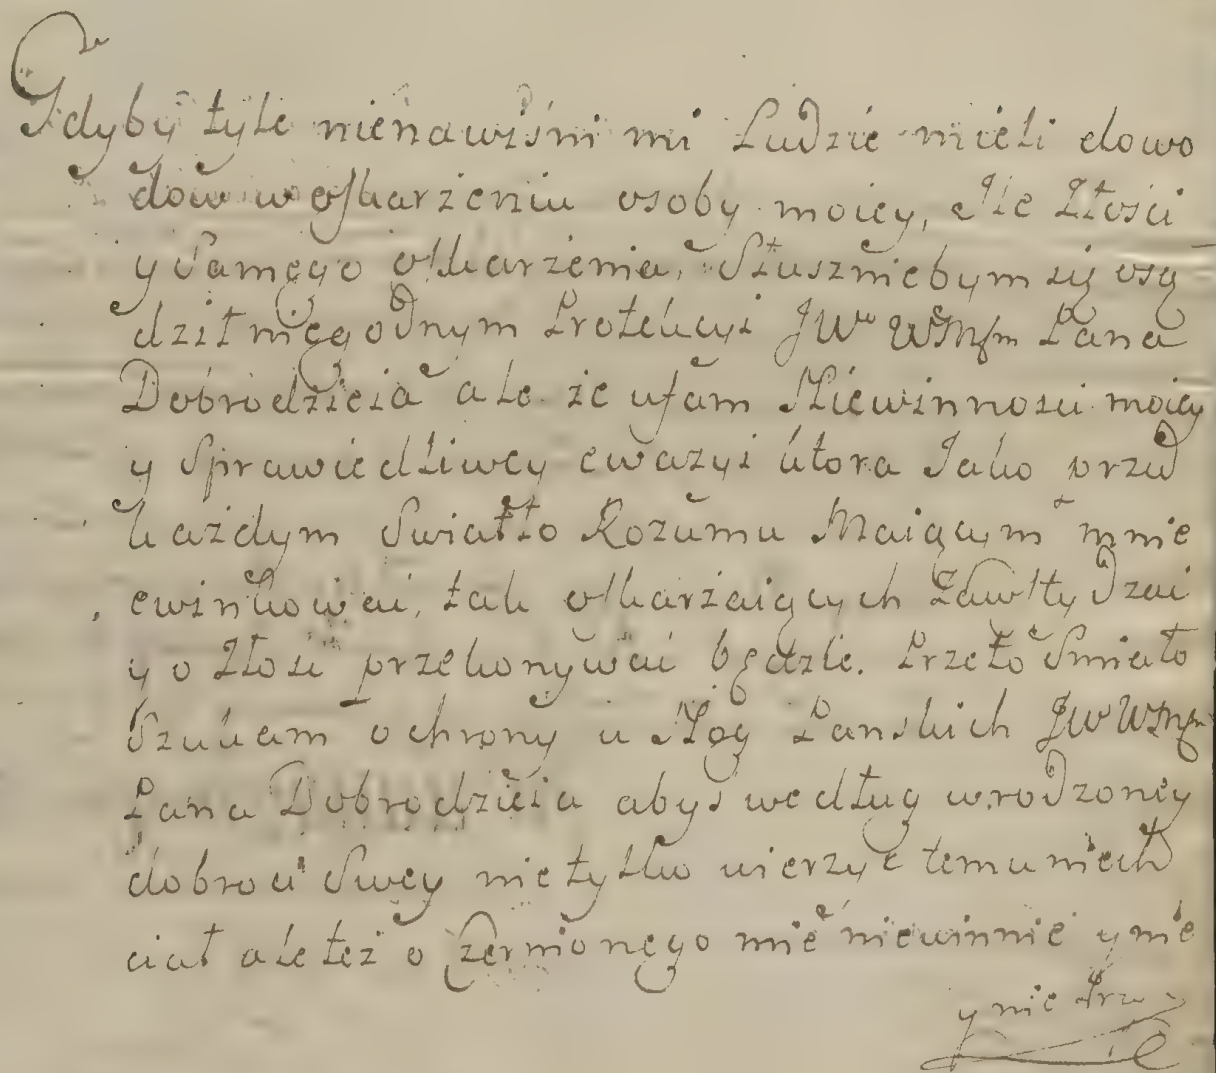 Gdyby tyle nienawiśni mi Ludzie mieli dowo
dow w oskarżeniu osoby moiey, Ile Złości
y Samego oskarżenia, Słuszniebym się osą
dził niegodnym Protekcyi JW WMPm Pana
Dobrodzieia ale że ufam Niewinności moiey
y Sprawiedliwey ewazyi ktora Jako przed
każdym Swiatło Rozumu Maiącym mnie
ewinkować, tak oskarżaiących zawstydzać
y o złości przekonywać będzie. Przeto Smiało
Szukam ochrony u Nog Panskich JW WMPm
Pana Dobrodzieia abyś według wrodzoney
dobroci Swey nie tylko wierzyć temu niech
ciał ale też o czernionego mię niewinnie y nie
y nie